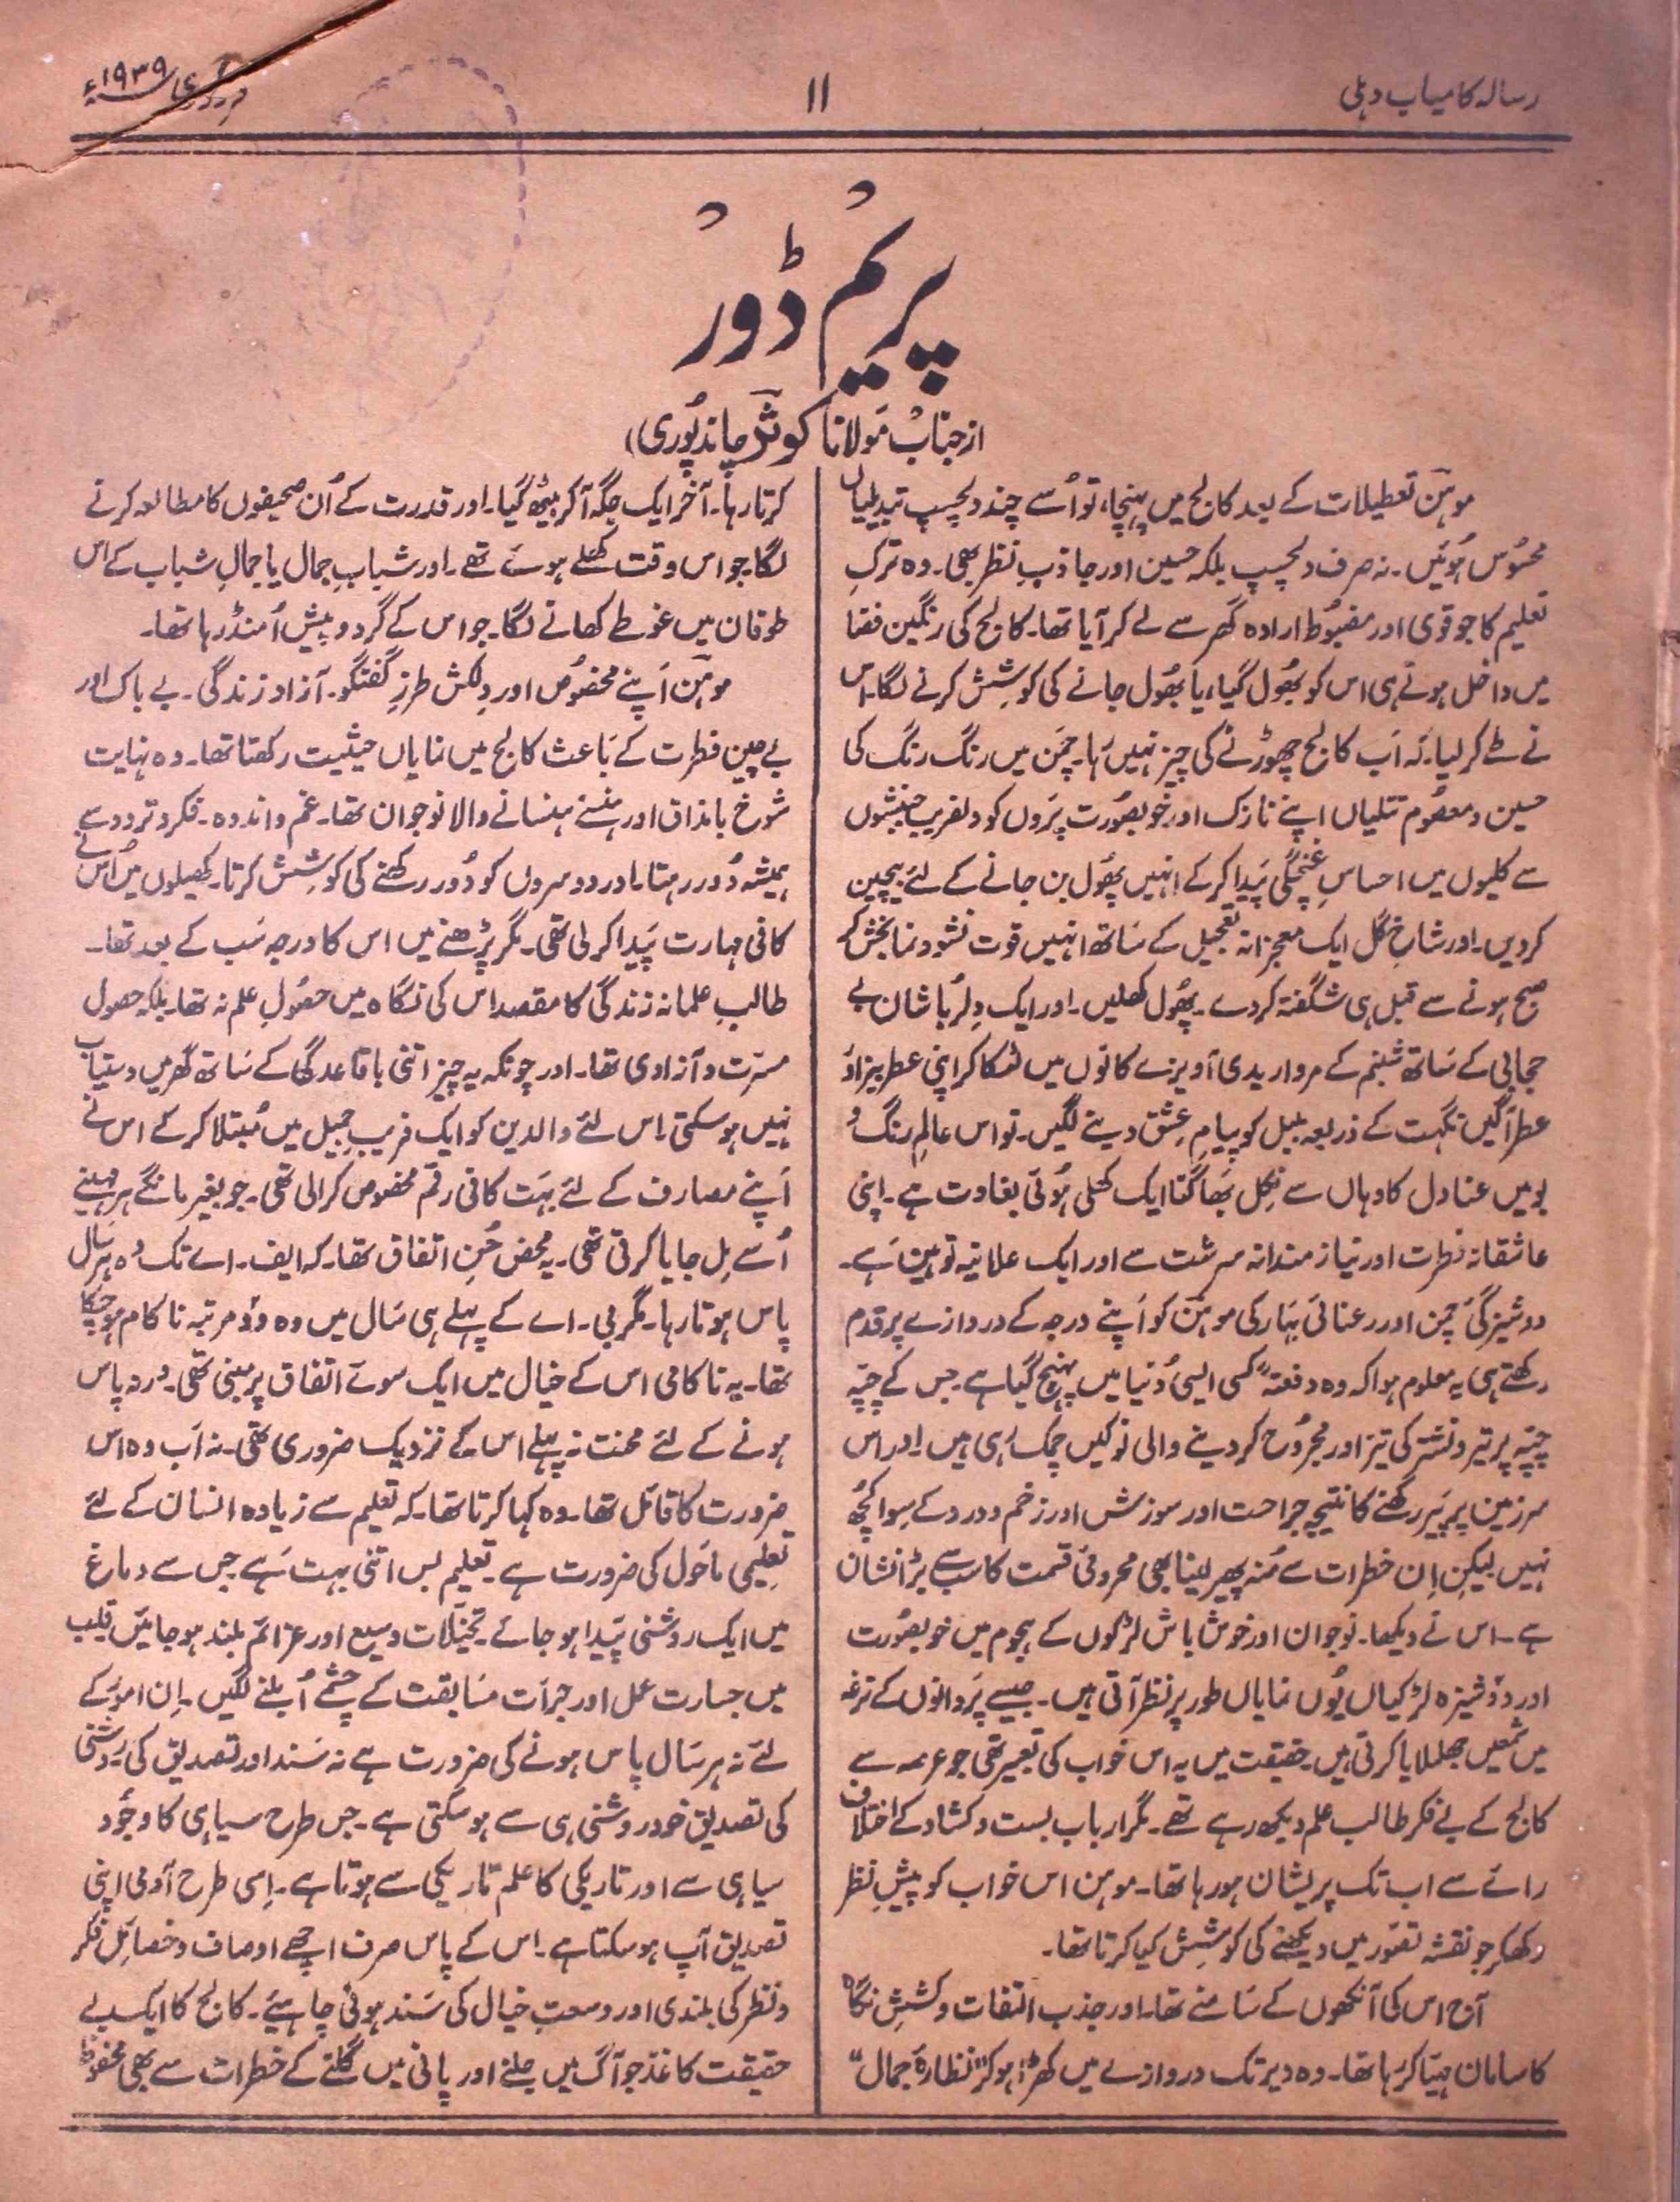 رسالہ کامیاب دہلی
۱۱
فروری ۱۹۳۹ء
پریم ڈور
(از جناب مولانا کوثر چاندپوری)
موہن تعطیلات کے بعد کالج میں پہنچا، تو اُسے چند دلچسپ تبدیلیاں
محسُوس ہُوئیں۔ نہ صرف دلچسپ بلکہ حسین اور جاذبِ نظر بھی۔ وہ ترکِ
تعلیم کا جو قوی اور مضبُوط ارادہ گھر سے لے کر آیا تھا۔ کالج کی رنگین فضا
میں داخل ہوتے ہی اس کو بھُول گیا، یا بھُول جانے کی کوشِش کرنے لگا۔ اس
نے طے کر لیا۔ کہ اَب کالج چھوڑنے کی چیز نہیں رَہا۔ چمن میں رنگ رنگ کی
حسین و معصُوم تتلیاں اپنے نازک اور خوبصُورت پَروں کو دلفریب جنبشوں
سے کلیوں میں احساسِ غنچگی پَیدا کر کے انہیں پھُول بن جانے کے لئے بیچین
کر دیں۔ اور شاخِ گل ایک معجزانہ تعجیل کے سَاتھ انہیں قوت نشو و نما بخش کر
صبح ہونے سے قبل ہی شگفتہ کر دے۔ پھُول کھلیں۔ اور ایک دِلرُبا شان بے
حجابی کے سَاتھ شبنم کے مرواریدی آویزے کانوں میں لٹکا کر اپنی عطر بیز اوَر
عطر آگیں نکہت کے ذریعہ بلبل کو پیامِ عشق دینے لگیں۔ تو اس عالمِ رنگ وُ
بو میں عنادل کا وہاں سے نکِل بھَاگنا ایک کھلی ہُوئی بغاوت ہے۔ اپنی
عاشقانہ فطرت اور نیازمندانہ سرشت سے اور ایک علانیہ توہین ہَے۔
دوشیزگیٔ چمن اور رعنائیٔ بہَار کی موہن کو اَپنے درجہ کے دروازے پر قدم
رکھتے ہی یہ معلوم ہوا کہ وہ دفعتہً کسی ایسی دُنیا میں پہنچ گیا ہے جس کے چپّہ
چپّہ پر تیر و نشتر کی تیز اور مجرُوح کر دینے والی نوکیں چمک رَہی ہیں۔ اور اس
سرزمین پر پَیر رکھنے کا نتیجہ جراحت اور سوزش اور زخم و درد کے سِوا کچُھ
نہیں لیکن اِن خطرات سے مُنہ پھیر لینا بھی محرومیٔ قسمت کا سب سے بڑا نشان
ہے۔ اس نے دیکھا۔ نوجوان اور خوش باش لڑکوں کے ہجوم میں خوبصُورت
اور دوشیزہ لڑکیاں یُوں نمایاں طور پر نظر آتی ہیں۔ جیسے پَروانوں کے نرغہ
میں شمعیں جھلملایا کرتی ہیں۔ حقیقت میں یہ اس خواب کی تعبیر تھی جو عرصہ سے
کالج کے بے فکر طالب علم دیکھ رہے تھے۔ مگر اربابِ بست و کشاد کے اختلافِ
رائے سے اب تک پریشان ہو رہا تھا۔ موہن اس خواب کو پیشِ نظر
رکھکر جو نقشہ تصّور میں دیکھنے کی کوشِش کیا کرتا تھا۔
آج اس کی آنکھوں کے سَامنے تھا۔ اور جذبِ التفات و کشِشِ نگاہ
کا سامان مہیّا کر رَہا تھا۔ وہ دیر تک دروازے میں کھڑا ہو کر "نظارۂ جمال"
کرتا رہا۔ آخر ایک جگہ آکر بیٹھ گیا۔ اور قدرت کے اُن صحیفوں کا مطالعہ کرنے
لگا۔ جو اس وقت کھُلے ہوئے تھے۔ اور شبابِ جمال یا جمالِ شباب کے اس
طوفان میں غوطے کھانے لگا۔ جو اس کے گرد و پیش اُمنڈ رہا تھا۔
موہن اَپنے مخصُوص اور دِلکش طرزِ گفتگو۔ آزاد زندگی۔ بے باک اور
بے چین فطرت کے بَاعث کالج میں نمایاں حیثیت رکھتا تھا۔ وہ نہایت
شوخ بامذاق اور ہنسنے ہنسانے والا نوجوان تھا۔ غم و اندوہ۔ فکر و تردد سے
ہمیشہ دُور رہتا۔ اور دوسروں کو دُور رکھنے کی کوشِش کرتا۔ کھیلوں میں اُس نے
کافی مہارت پَیدا کر لی تھی۔ مگر پڑھنے میں اس کا درجہ سَب کے بعد تھا۔
طالب علمانہ زندگی کا مقصد اس کی نگاہ میں حصُولِ علم نہ تھا۔ بلکہ حصول
مسَرّت و آزادی تھا۔ اور چونکہ یہ چیز اتنی باقاعدگی کے سَاتھ گھر میں دستیاب
نہیں ہو سکتی۔ اس لئے والدین کو ایک فریبِ جمیل میں مُبتلا کر کے اس نے
اَپنے مصارف کے لئے بہَت کافی رقم مخصوص کرالی تھی۔ جو بغیر مانگے ہر مہینے
اُسے مِل جایا کرتی تھی۔ یہ محض حُسنِ اتفاق تھا۔ کہ ایف۔ اے تک وُہ ہر سَال
پاس ہوتا رہا۔ مگر بی۔ اے کے پہلے ہی سَال میں وہ دوُ مرتبہ ناکام ہو چکا
تھا۔ یہ ناکامی اس کے خیال میں ایک سوئے اتفاق پر مبنی تھی۔ ورنہ پاس
ہونے کے لئے محنت نہ پہلے اس کے نزدیک ضروری تھی۔ نہ اَب وہ اس
ضرورت کا قائل تھا۔ وہ کہا کرتا تھا۔ کہ تعلیم سے زیادہ انسان کے لئے
تعلیمی ماحَول کی ضرورت ہے۔ تعلیم بس اتنی بہت ہَے جس سے دماغ
میں ایک روشنی پَیدا ہو جائے۔ تخیّلات وسیع اور عزائم بلند ہو جائیں قلب
میں جسارت عمل اور جرأت مسَابقت کے چشمے اُبلنے لگیں۔ اِن امور کے
لئے نہ ہر سَال پاس ہونے کی ضرورت ہے نہ سَند اور تصدیق کی۔ روشنی
کی تصدیق خود روشنی ہی سے ہو سکتی ہے۔ جس طرح سیاہی کا وجُود
سیاہی سے اور تاریکی کا علم تاریکی سے ہوتا ہے۔ اِسی طرح آدمی اپنی
تصدیق آپ ہو سکتا ہے۔ اس کے پاس صرف اچھّے اوصاف و خصائل فکر
و نظر کی بلندی اور وسعتِ خیال کی سَند ہوئی چاہیئے۔ کالج کا ایک بے
حقیقت کاغذ جو آگ میں جلنے اور پانی میں گلنے کے خطرات سے بھی محفوظ